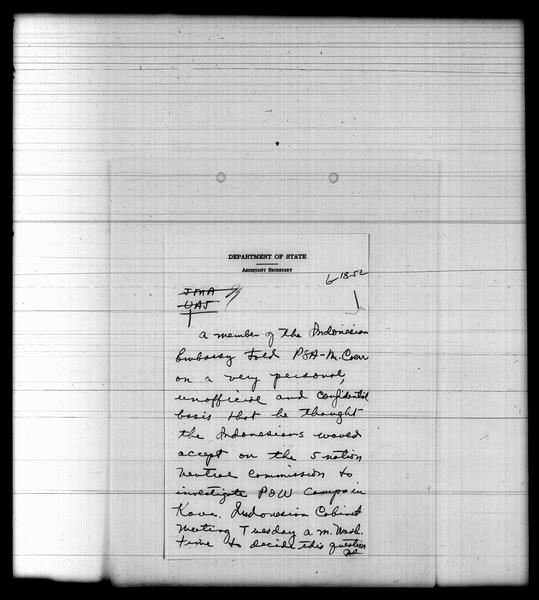 DEPARTMENT OF STATE
ASSISTANT SECRETARY
6-18-52
JMA
UAJ
A member of the Indonesian
Embassy told PSA-
on a very personal,
unofficial and confidential
basis that he thought
the Indonesians
accept on the 5 nation
neutral commission to
investigate POW Camps in
Indonesian Cabinet
meeting Tuesday a.m. Wash.
time to decide this question